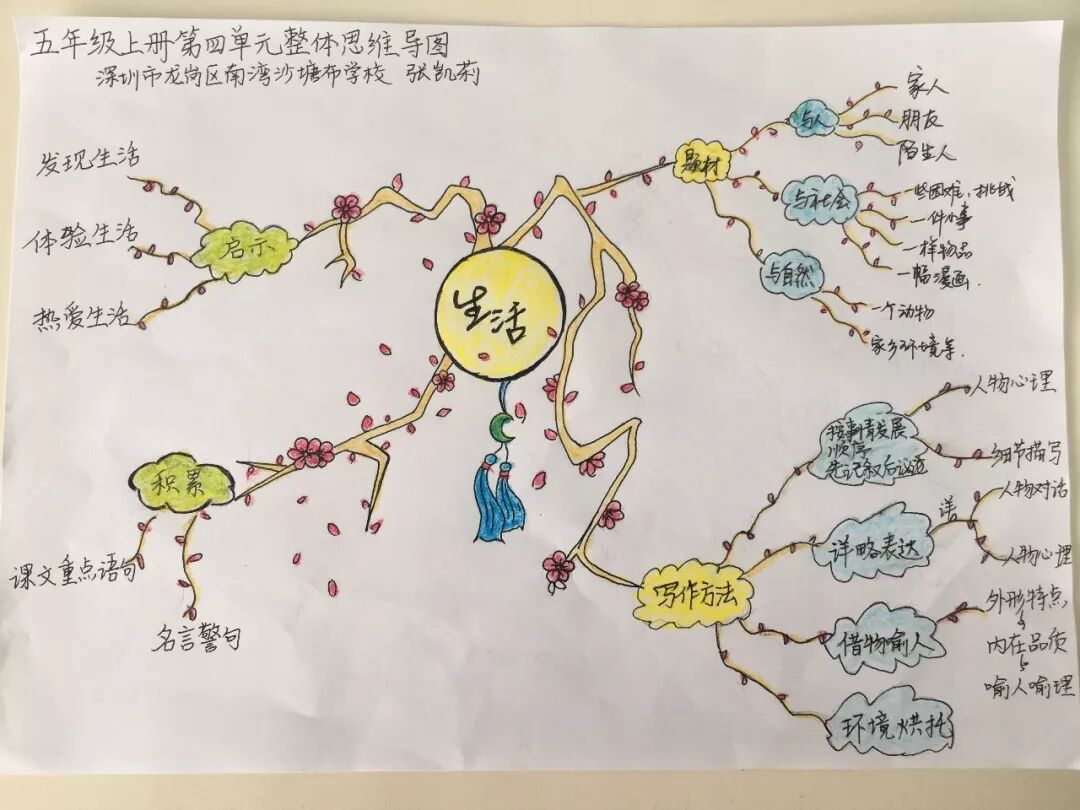 五年级上册第四单元整体思维导图
深圳市龙岗区南湾沙塘布学校 张凯莉
生活
启示
发现生活
体验生活
热爱生活
积累
课文重点语句
名言警句
题材
与人
家人
朋友
陌生人
与社会
一些困难、挑战
一件小事
一样物品
一幅漫画.
与自然
一个动物
家乡环境等.
写作方法
按事情发展
顺序
先记叙后议论
人物心理
细节描写
详略表达
详
人物对话
人物心理
借物喻人
外形特点
内在品质
喻人喻理
环境烘托